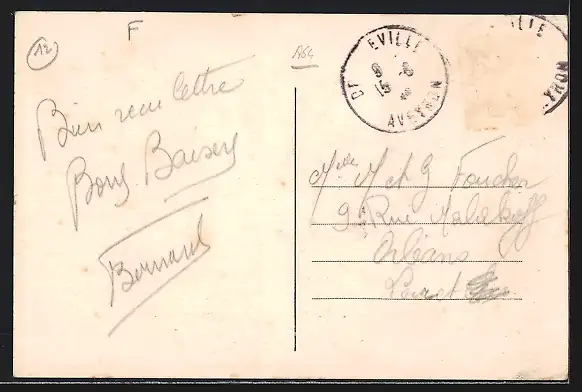 12
F
A64
Bien reçu lettre
Bons Baisers
Bernard
EVILLE
AVEYRON
Melle M et G Foucher
9 Rue Malakoff
Orléans
Loiret